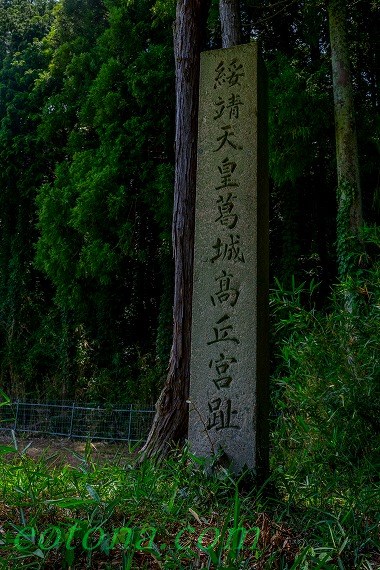 綏靖天皇葛城高丘宮趾
eotona.com